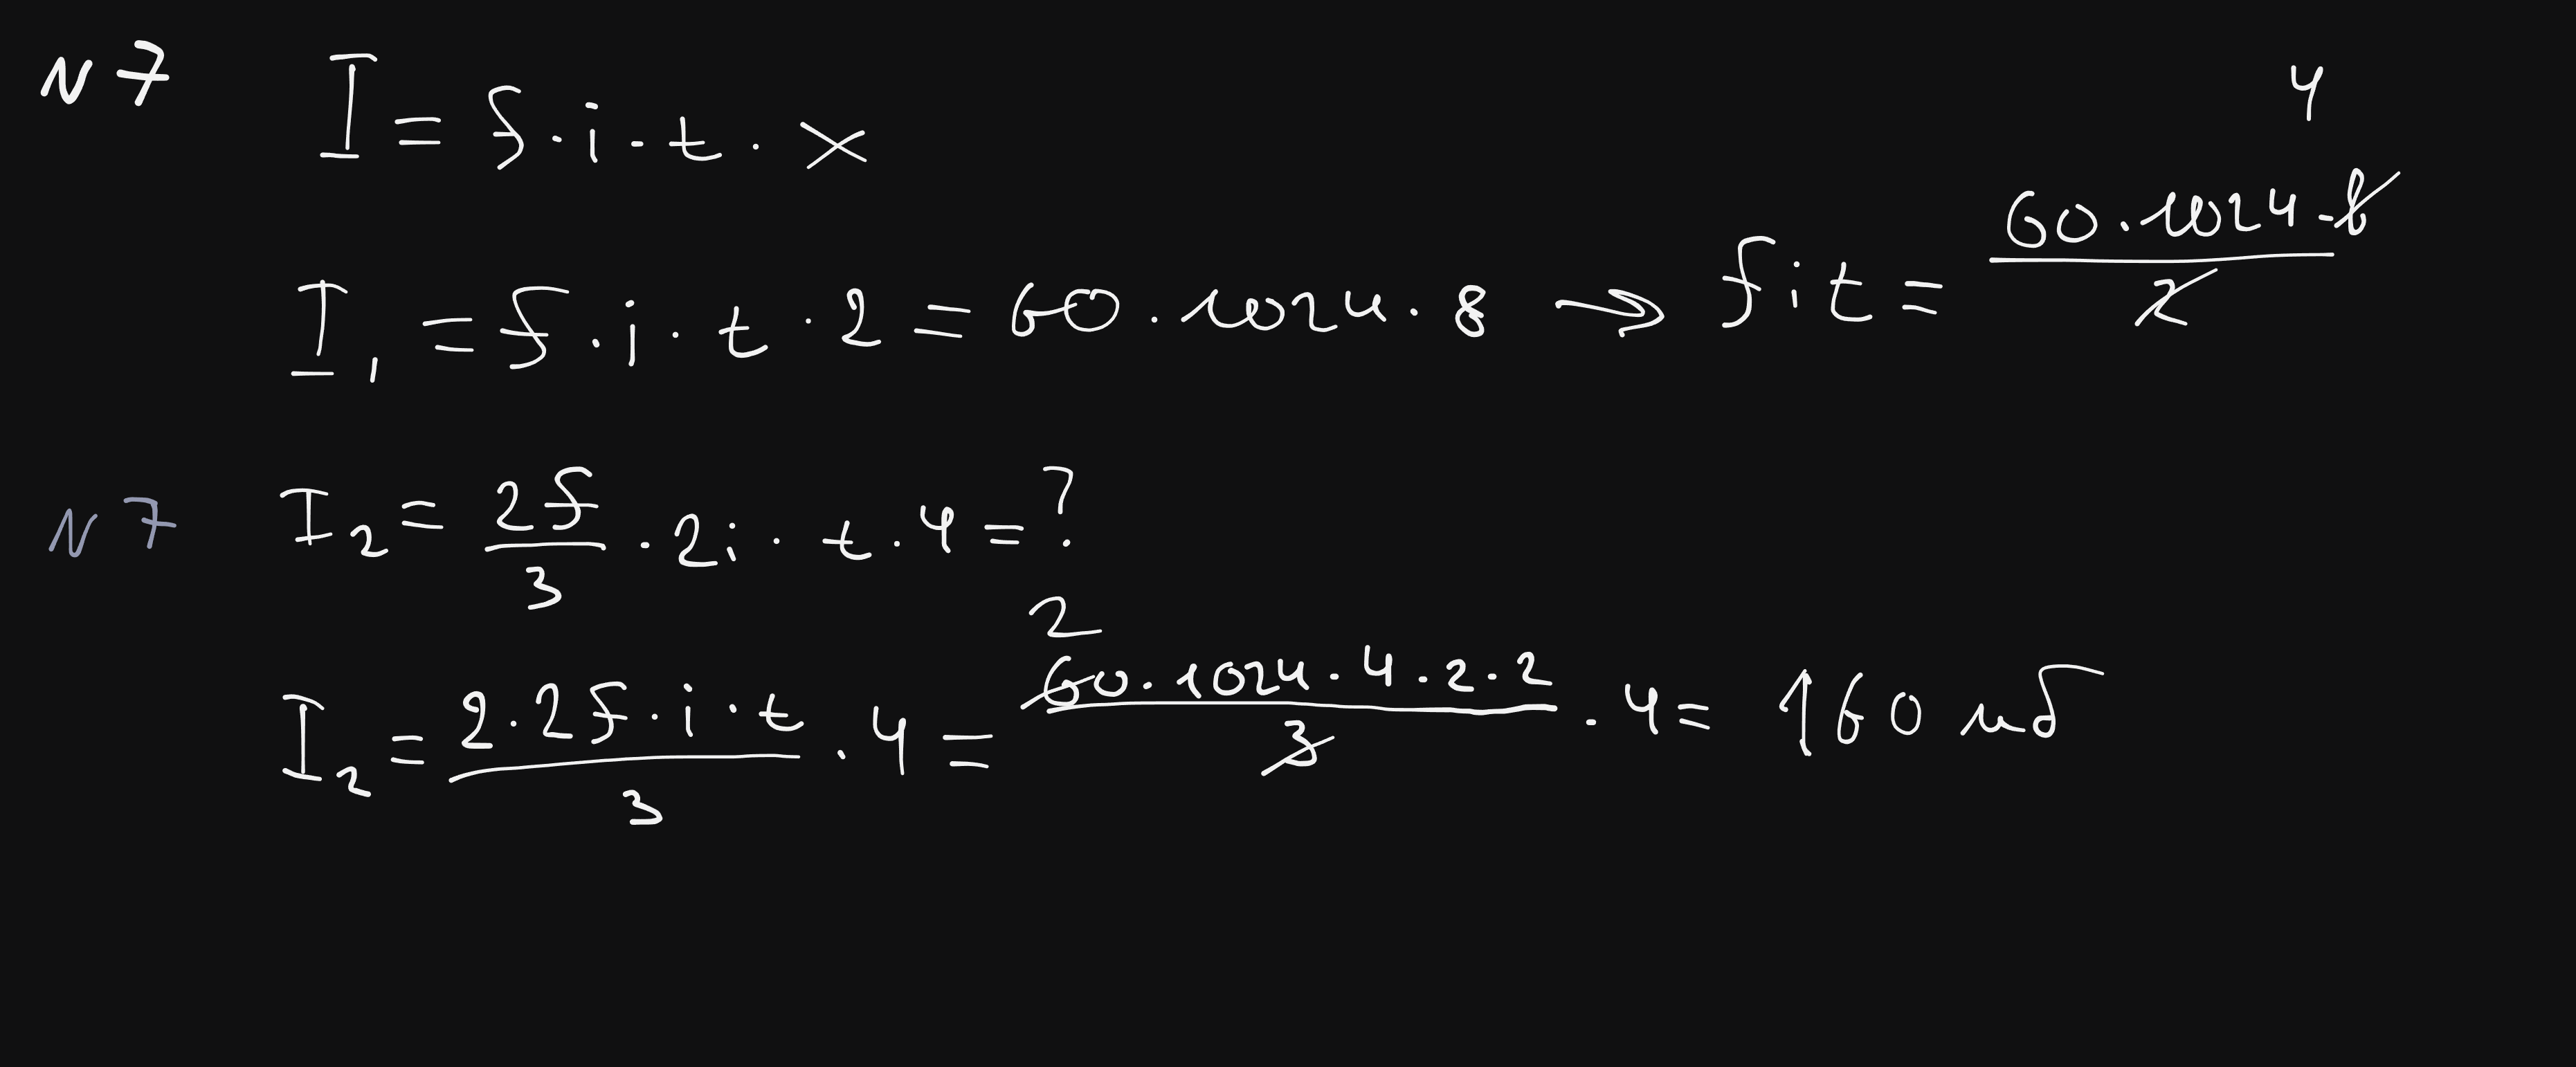 N 7 I = f · i · t · x
I₁ = f · i · t · 2 = 60 · 1024 · 8 → f i t = 60 · 1024 · 8 / 2 4
N 7 I₂ = 2f / 3 · 2i · t · 4 = ?
I₂ = 2 · 2f · i · t / 3 · 4 = 2 60 · 1024 · 4 · 2 · 2 / 3 · 4 = 160 мб